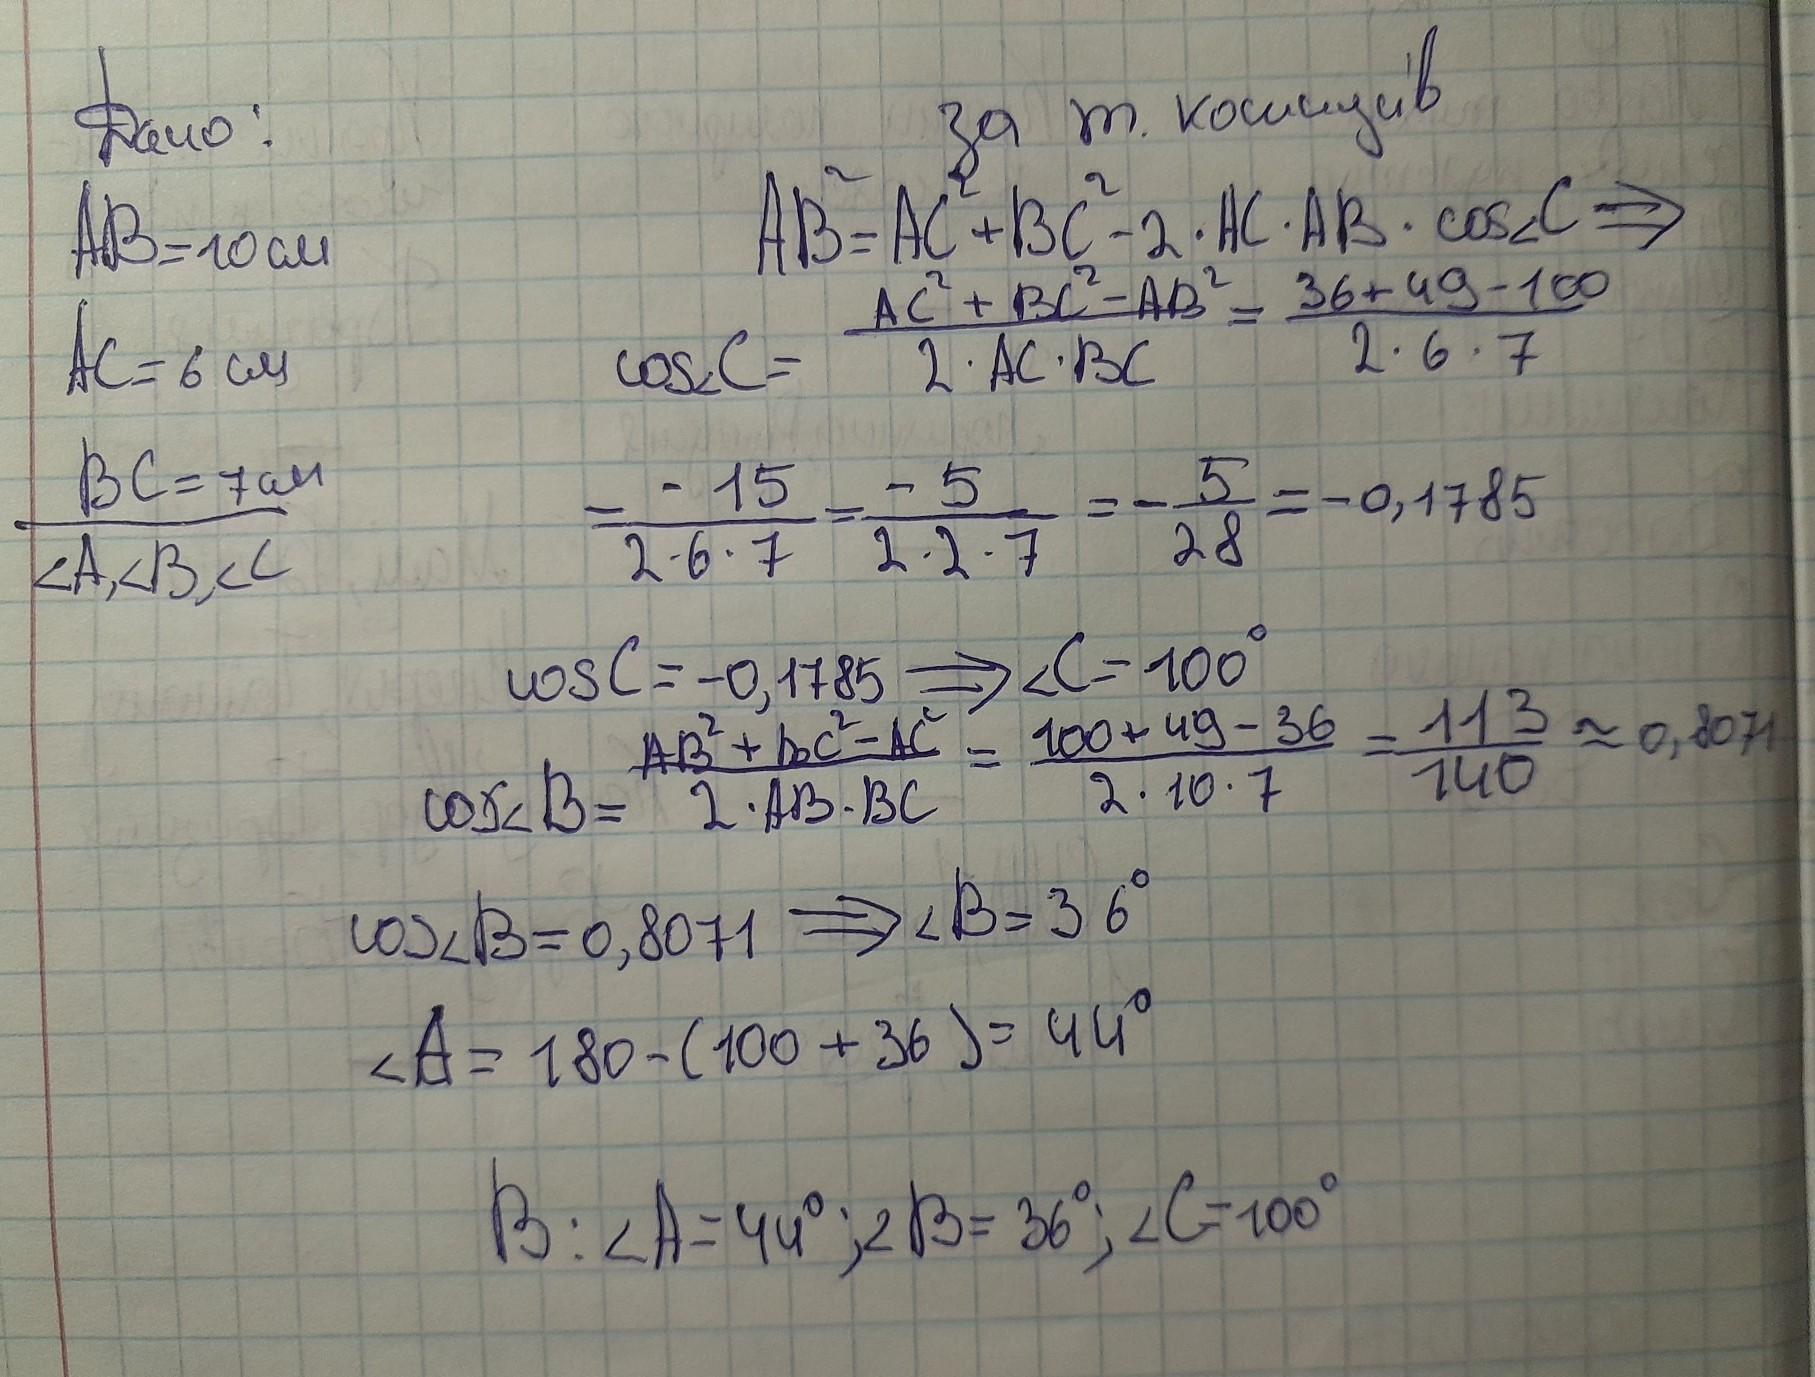 Дано:
AB=10см
AC=6 см
BC=7см
<A,<B,<C
за т. косинусів
AB²=AC²+BC²-2·AC·AB·cos<C⇒
cos<C= AC²+BC²-AB² / 2·AC·BC = 36+49-100 / 2·6·7
= -15 / 2·6·7 = -5 / 2·2·7 = - 5 / 28 = -0,1785
cosC=-0,1785 ⇒ <C=100°
cos<B= AB²+BC²-AC² / 2·AB·BC = 100+49-36 / 2·10·7 = 113 / 140 ≈ 0,8071
cos<B=0,8071 ⇒ <B=36°
<A=180-(100+36)=44°
В: <A=44°; <B=36°; <C=100°